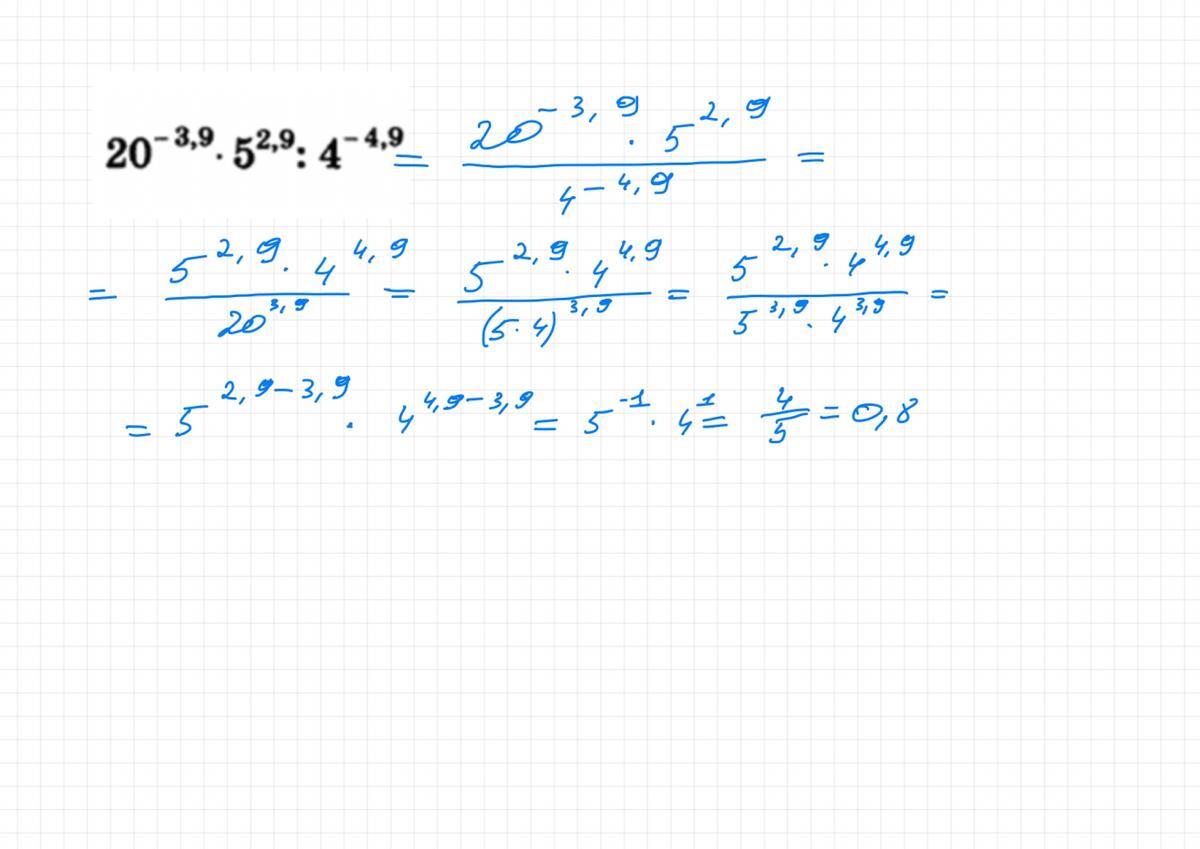 20^{-3,9} · 5^{2,9} : 4^{-4,9} = \frac{20^{-3,9} · 5^{2,9}}{4^{-4,9}} =
= \frac{5^{2,9} · 4^{4,9}}{20^{3,9}} = \frac{5^{2,9} · 4^{4,9}}{(5·4)^{3,9}} = \frac{5^{2,9} · 4^{4,9}}{5^{3,9} · 4^{3,9}} =
= 5^{2,9-3,9} · 4^{4,9-3,9} = 5^{-1} · 4^{1} = \frac{4}{5} = 0,8